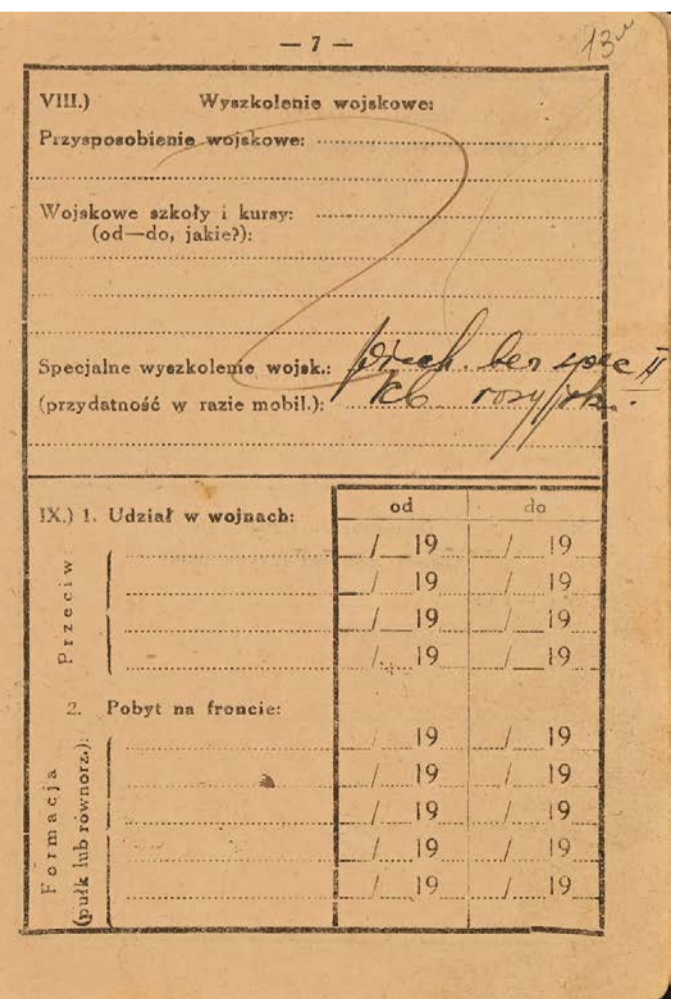 — 7 —
13
VIII.) Wyszkolenie wojskowe:
Przysposobienie wojskowe:
Wojskowe szkoły i kursy:
(od—do, jakie?):
Specjalne wyszkolenie wojsk.: piech. bez spec II
(przydatność w razie mobil.): rosyjsk.
IX.) 1. Udział w wojnach: od do
Przeciw:
/ 19 / 19
/ 19 / 19
/ 19 / 19
/ 19 / 19
2. Pobyt na froncie:
Formacja
(pułk lub równorz.):
/ 19 / 19
/ 19 / 19
/ 19 / 19
/ 19 / 19
/ 19 / 19